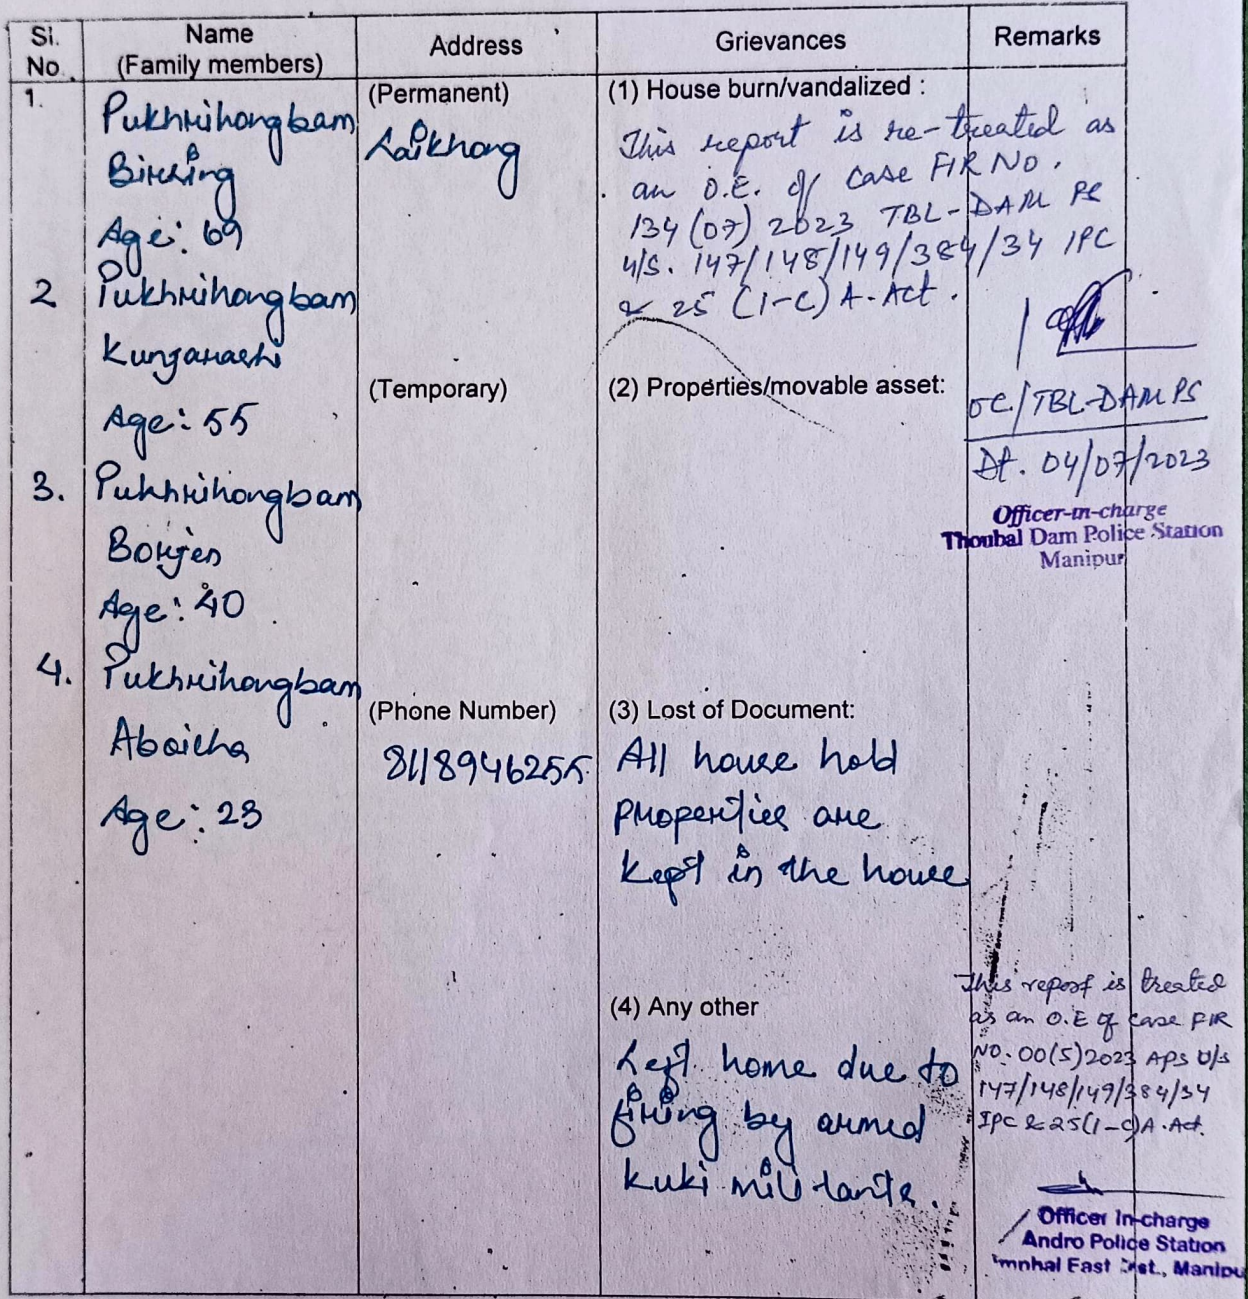 Sl. No.
Name (Family members)
Address
Grievances
Remarks
1.
Pukhrihongbam
Birsing
Age: 69
2
Pukhrihongbam
Kunjarashi
Age: 55
3.
Pukhrihongbam
Borjen
Age: 40
4.
Pukhrihongbam
Aboicha
Age: 23
(Permanent)
Laikhong
(Temporary)
(Phone Number)
8118946255
(1) House burn/vandalized :
This report is re-treated as
an O.E. of case FIR NO.
134 (07) 2023 TBL-DAM PS
u/s. 147/148/149/384/34 IPC
& 25 (1-C) A. Act.
(2) Properties/movable asset:
(3) Lost of Document:
All house hold
properties are
kept in the house
(4) Any other
Left home due to
firing by armed
kuki militants.
OC/TBL-DAM PS
Dt. 04/07/2023
Officer-in-charge
Thoubal Dam Police Station
Manipur
This report is treated
as an O.E of case FIR
NO. 00(5)2023 APS U/s
147/148/149/384/34
IPC & 25(1-C) A. Act.
Officer In-charge
Andro Police Station
Imphal East Dist., Manipu